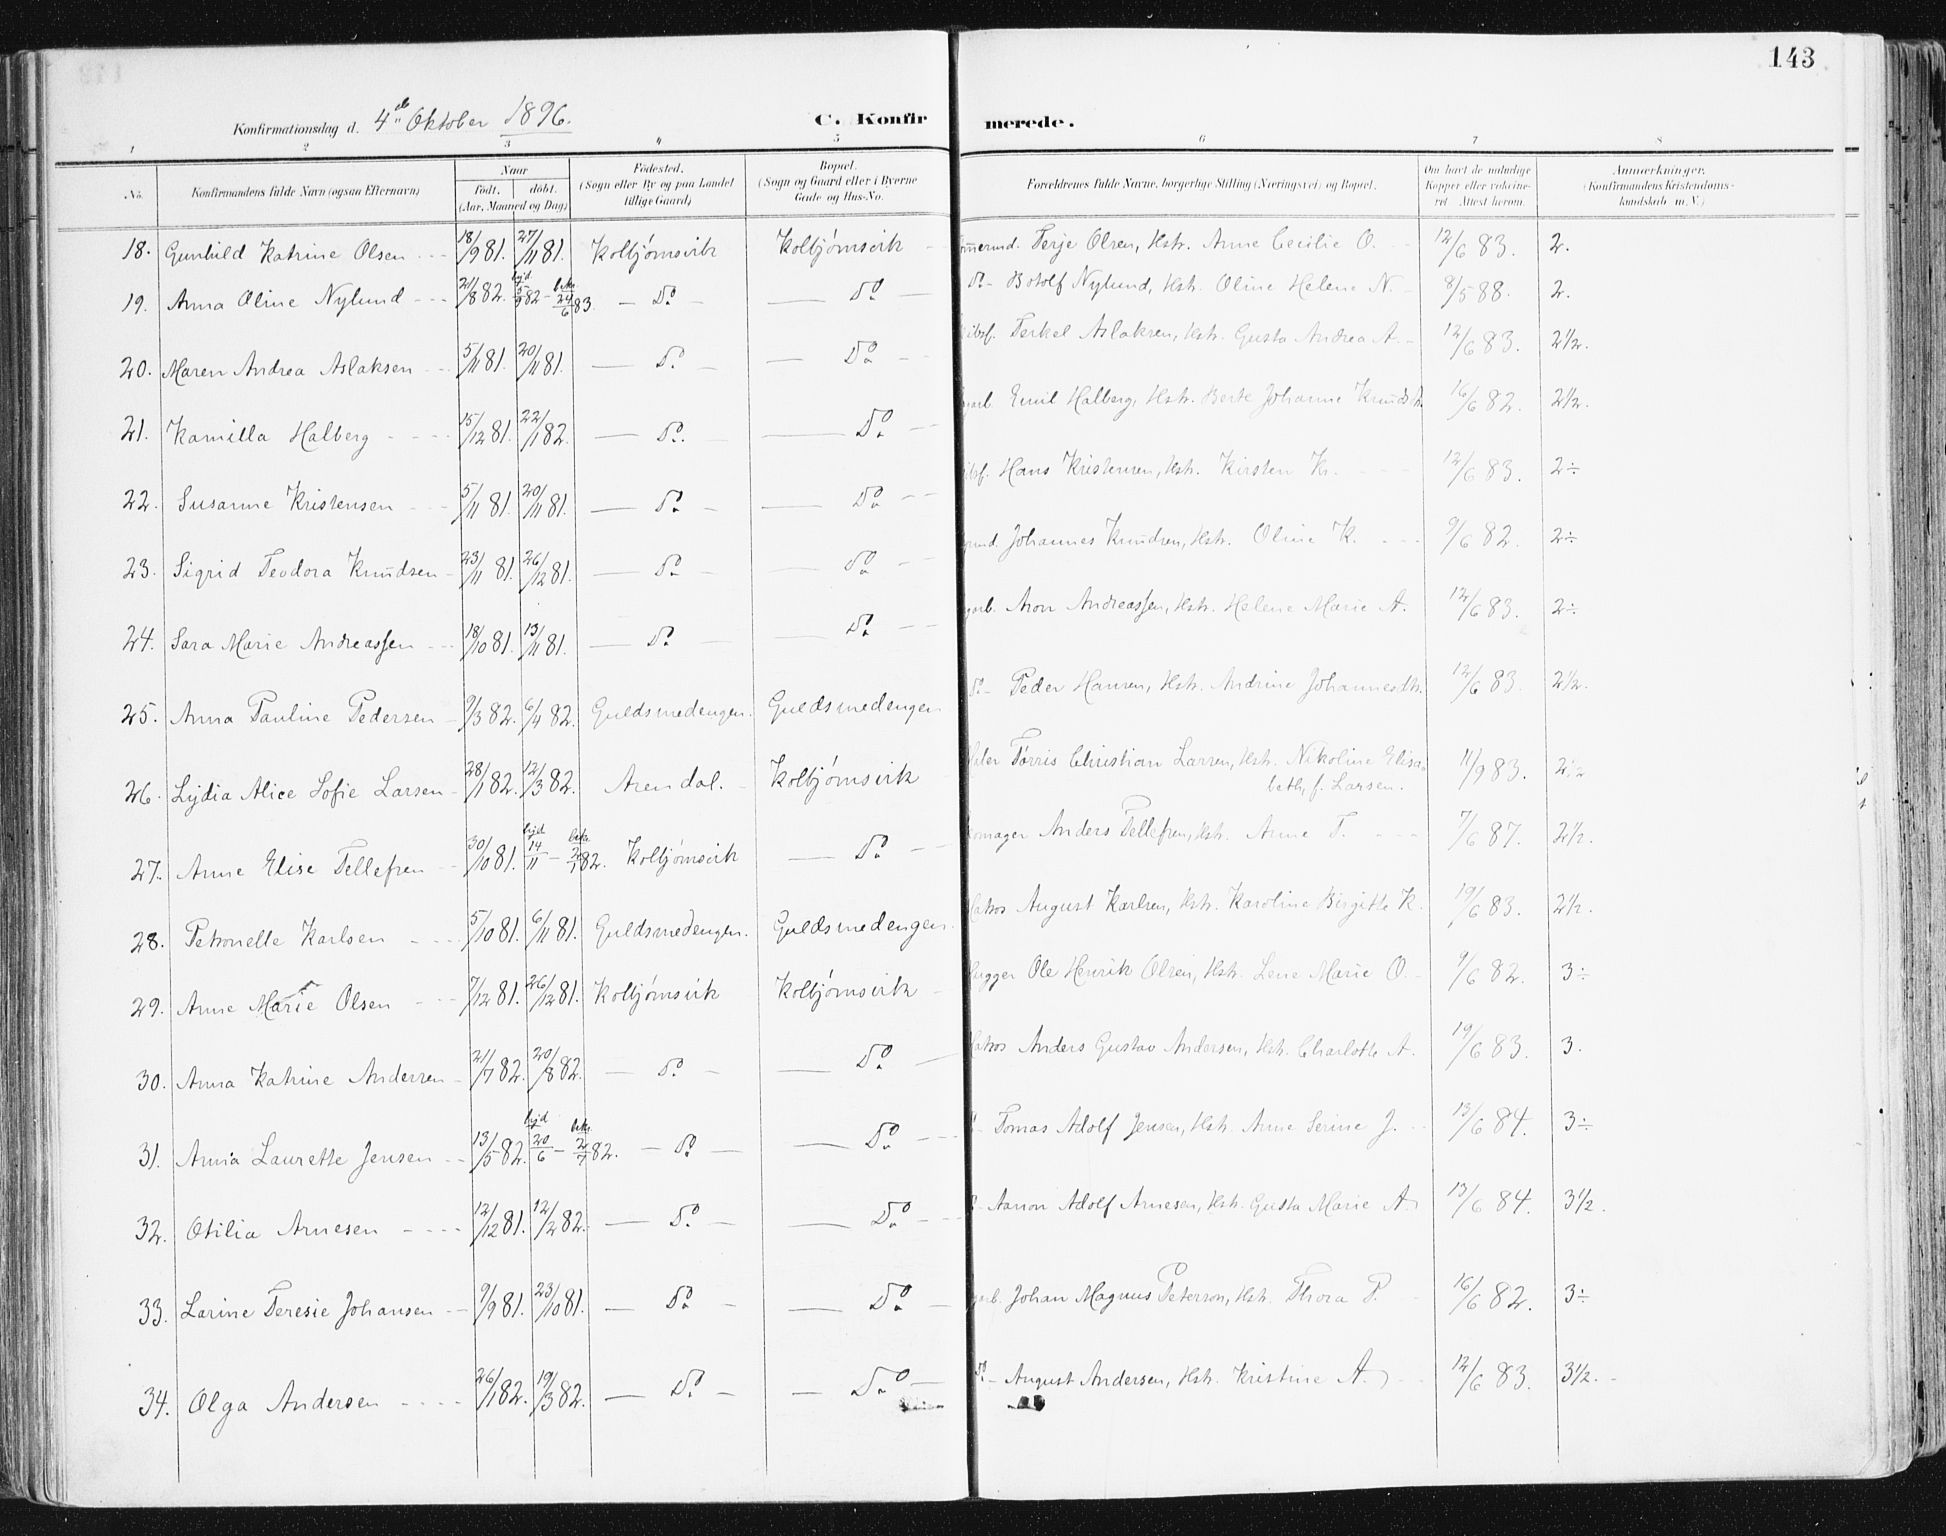 143
Konfirmationsdag d. 4de Oktober 1896.
C. Konfirmerede.
1 2 3 4 5 6 7 8
No. Konfirmandens fulde Navn (ogsaa Efternavn) Naar født. døbt. (Aar, Maaned og Dag) Fødested. (Sogn eller By og paa Landet tillige Gaard) Bopæl. (Sogn og Gaard eller i Byerne Gade og Hus-No. Forældrenes fulde Navne, borgerlige Stilling (Næringsvei) og Bopæl. Om havt de naturlige Kopper eller vaksineret. Attest herom. Anmærkninger. (Konfirmandens Kristendomskundskab m. V.)
18. Gunhild Katrine Olsen 18/9 81. 27/11 81. Kolbjørnsvik Kolbjørnsvik Terje Olsen, Hstr. Anne Cecilie O. 12/6 83. 2.
19. Anna Oline Nylund 21/8 82. hjd 5/9 82 - bekr. 24/6 83. Do Do Do Botolf Nylund, Hstr. Oline Helene N. 8/5 88. 2.
20. Maren Andrea Aslaksen 5/11 81. 20/11 81. Do Do Terkel Aslaksen, Hstr. Gusta Andrea A. 12/6 83. 2½.
21. Kamilla Halberg 15/12 81. 22/1 82. Do. Do Emil Halberg, Hstr. Berte Johanne Knudsdtr. 16/6 82. 2½.
22. Susanne Kristensen 5/11 81. 20/11 81. Do Do Hans Kristensen, Hstr. Kirsten Kr. 12/6 83. 2÷
23. Sigrid Teodora Knudsen 23/11 81. 26/12 81. Do Do Johannes Knudsen, Hstr. Oline K. 9/6 82. 2÷
24. Sara Marie Andreassen 18/10 81. 13/11 81. Do Do Aron Andreassen, Hstr. Helene Marie A. 12/6 83. 2÷
25. Anna Pauline Pedersen 9/3 82. 6/4 82. Guldsmedengen. Guldsmedengen Do Peder Hansen, Hstr. Andrine Johannesdtr. 12/6 83. 2½.
26. Lydia Alice Sofie Larsen 28/1 82. 12/3 82. Arendal. Kolbjørnsvik Tørris Christian Larsen, Hstr. Nikoline Elisabeth, f. Larsen. 11/9 83. 2½
27. Anne Elise Tellefsen 30/10 81. hjd 14/11 - bekr. 2/1 82. Kolbjørnsvik Do Anders Tellefsen, Hstr. Anne T. 7/6 87. 2½.
28. Petronelle Karlsen 5/10 81. 6/11 81. Guldsmedengen. Guldsmedengen. August Karlsen, Hstr. Karoline Birgitte K. 19/6 83. 2½.
29. Anne Marie Olsen 7/12 81. 26/12 81. Kolbjørnsvik Kolbjørnsvik Ole Henrik Olsen, Hstr. Lene Marie O. 9/6 82. 3÷
30. Anna Katrine Andersen 21/7 82. 20/8 82. Do Do Anders Gustav Andersen, Hstr. Charlotte A. 19/6 83. 3.
31. Anna Laurette Jensen 13/5 82. hjd 20/6 - bekr. 2/7 82. Do Do Tomas Adolf Jensen, Hstr. Anne Serine J. 13/6 84. 3÷
32. Otilia Arnesen 12/12 81. 12/2 82. Do Do Aanon Adolf Arnesen, Hstr. Gusta Marie A. 13/6 84. 3½.
33. Larine Teresie Johansen 9/9 81. 23/10 81. Do Do Johan Magnus Peterson, Hstr. Thora P. 16/6 82. 3÷
34. Olga Andersen 26/1 82. 19/3 82. Do Do Do August Andersen, Hstr. Kristine A. 12/6 83. 3½.